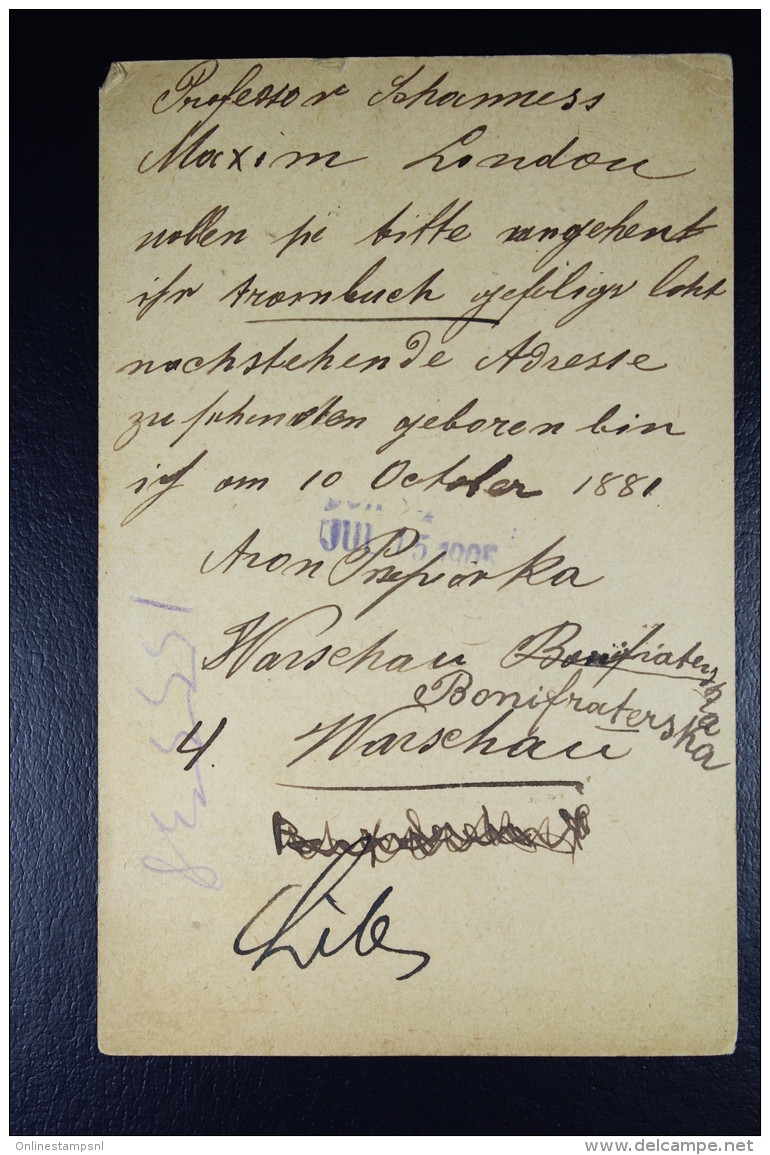 Professor Johanness
Maxim London
wollen sie bitte umgehent
ihr traumbuch gefeligs
nachstehende Adresse
zu sehnden geboren bin
ich am 10 October 1881
JUL 15 1905
Aron
Warschau Bonifraterska
Bonifraterska
4. Warschau
Onlinestampsnl
delcampe.net